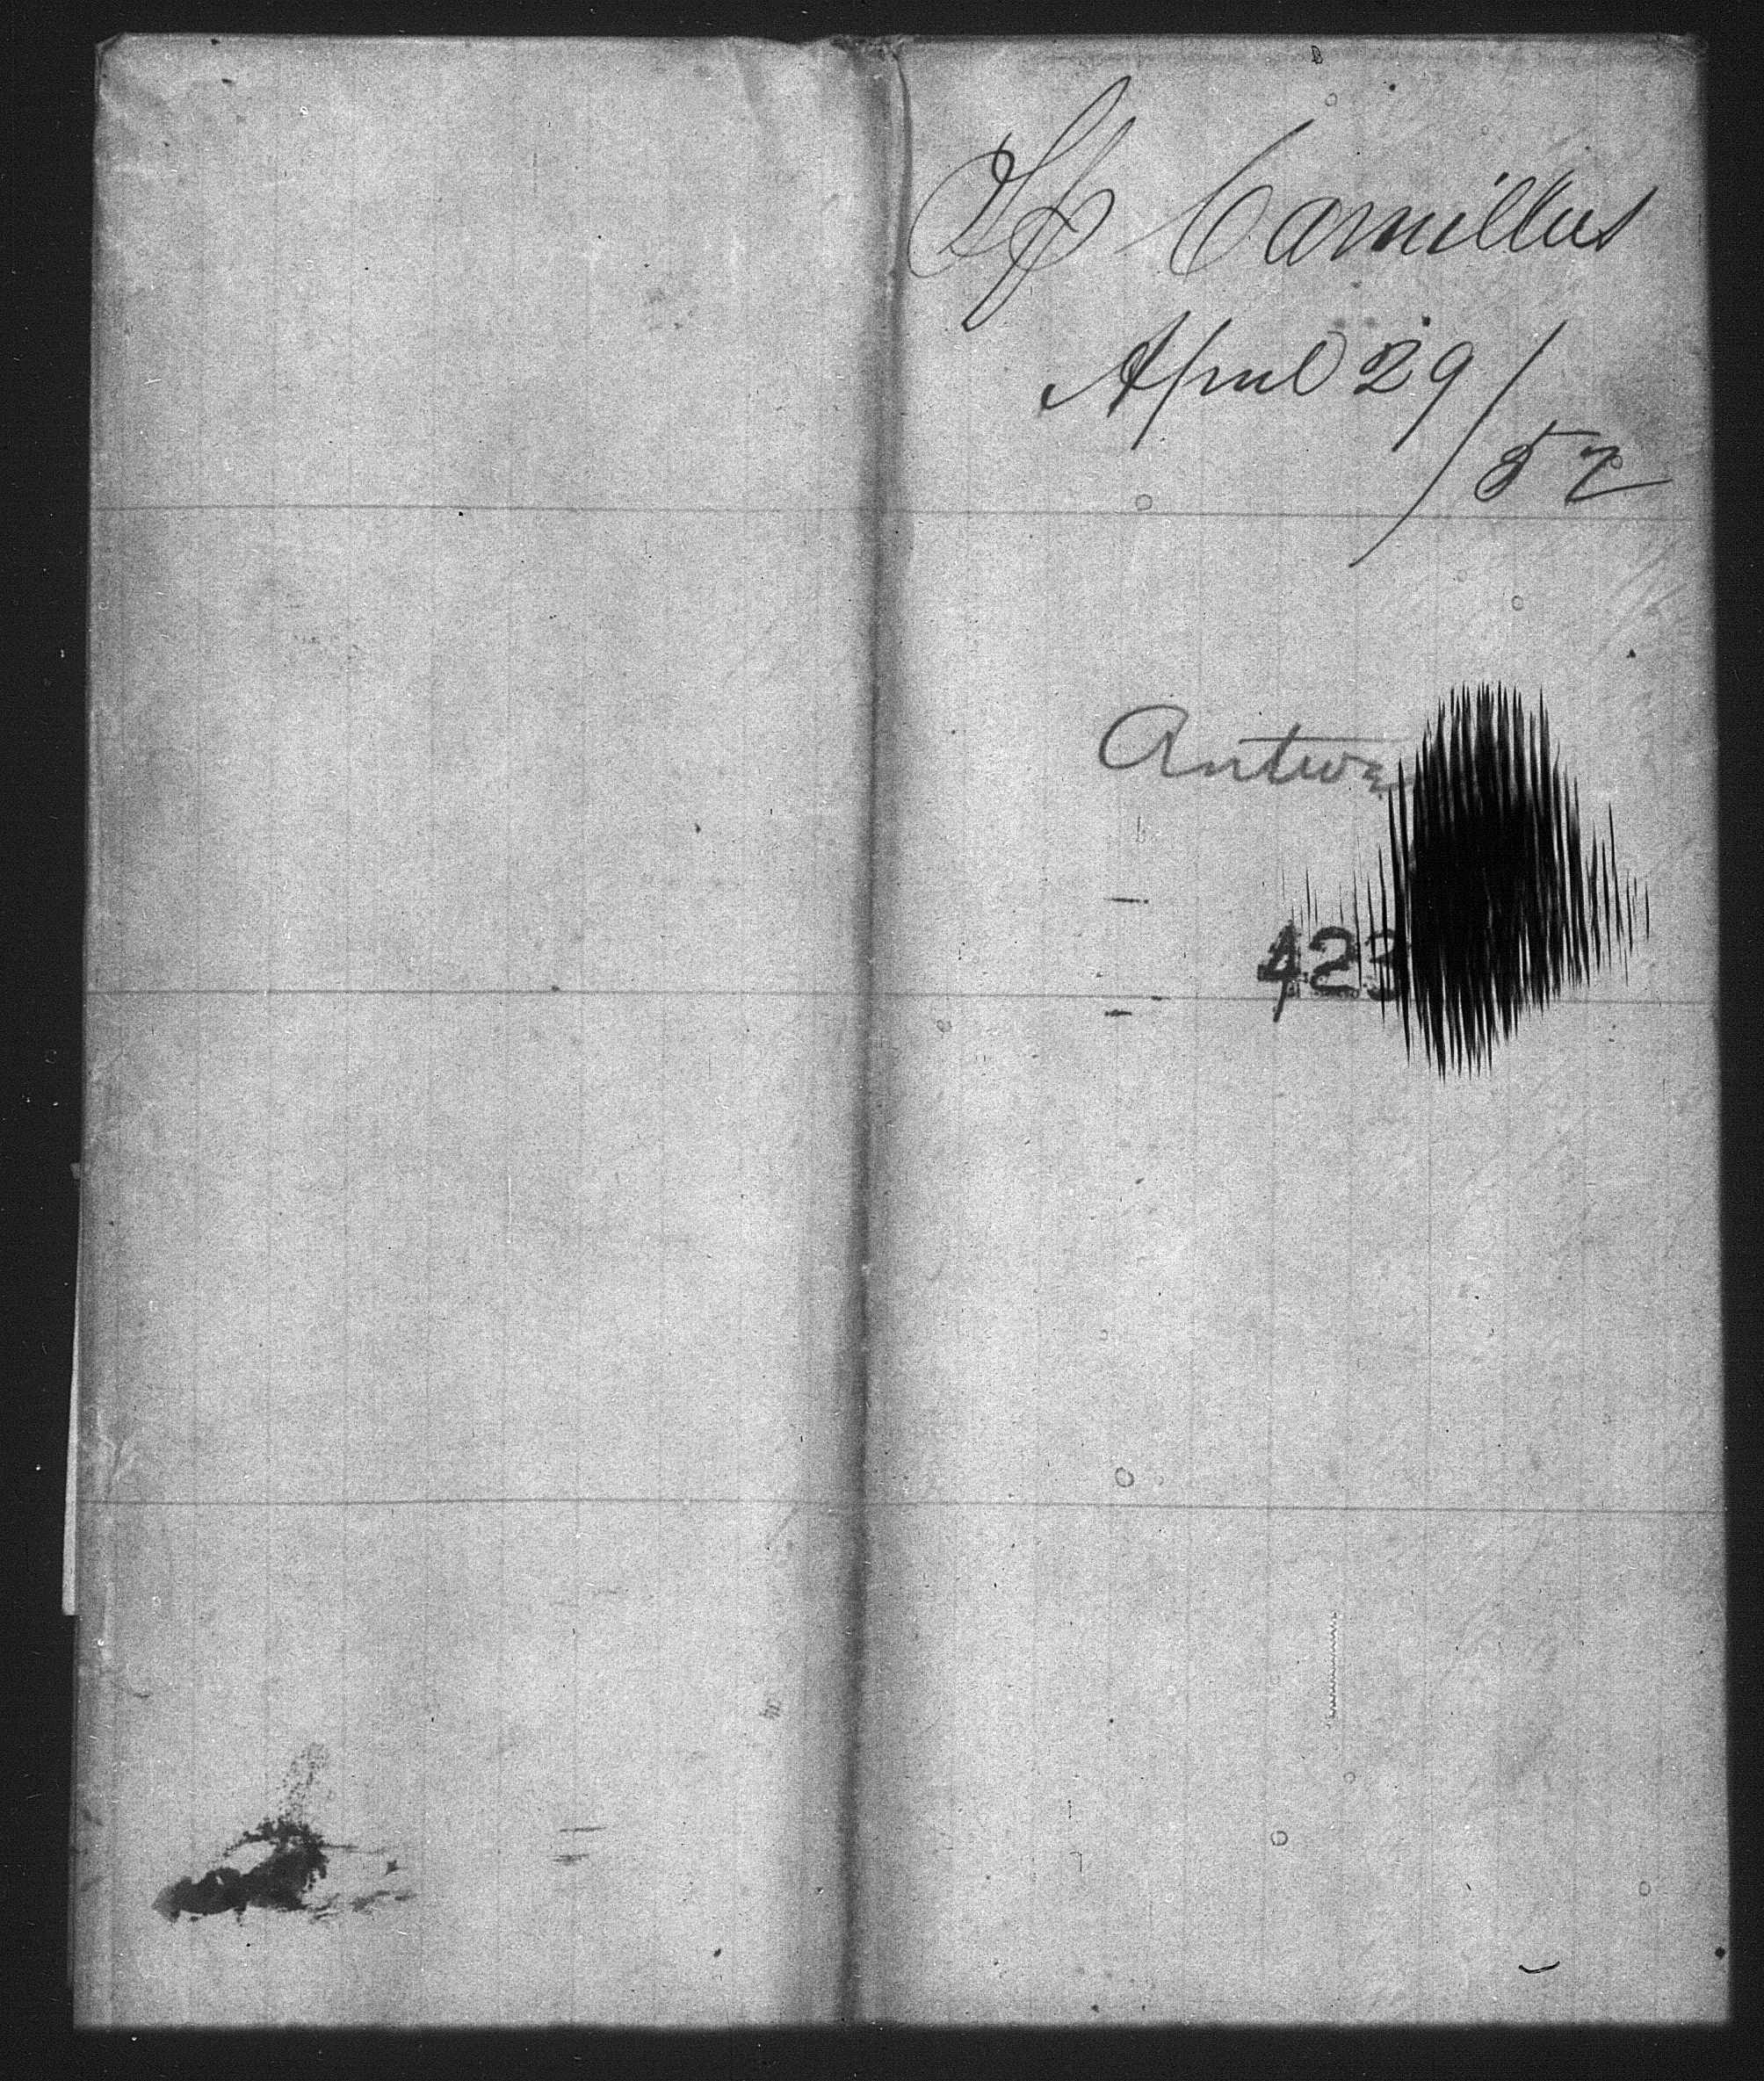 Camillus
April 29/
52
Antwe
423